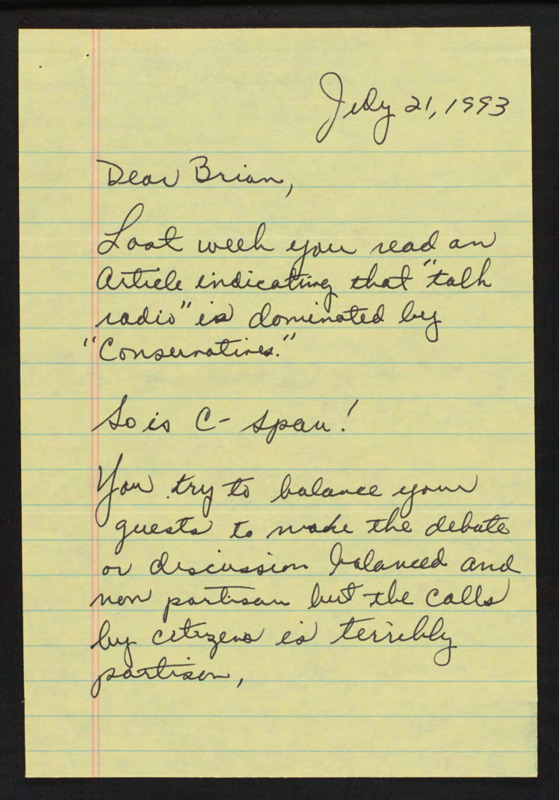 July 21, 1993
Dear Brian,
Last week you read an
Article indicating that "talk
radio" is dominated by
"Conservatives."
So is C-span!
You try to balance your
guests to make the debate
or discussion balanced and
non partisan but the calls
by citizens is terribly
partisan,